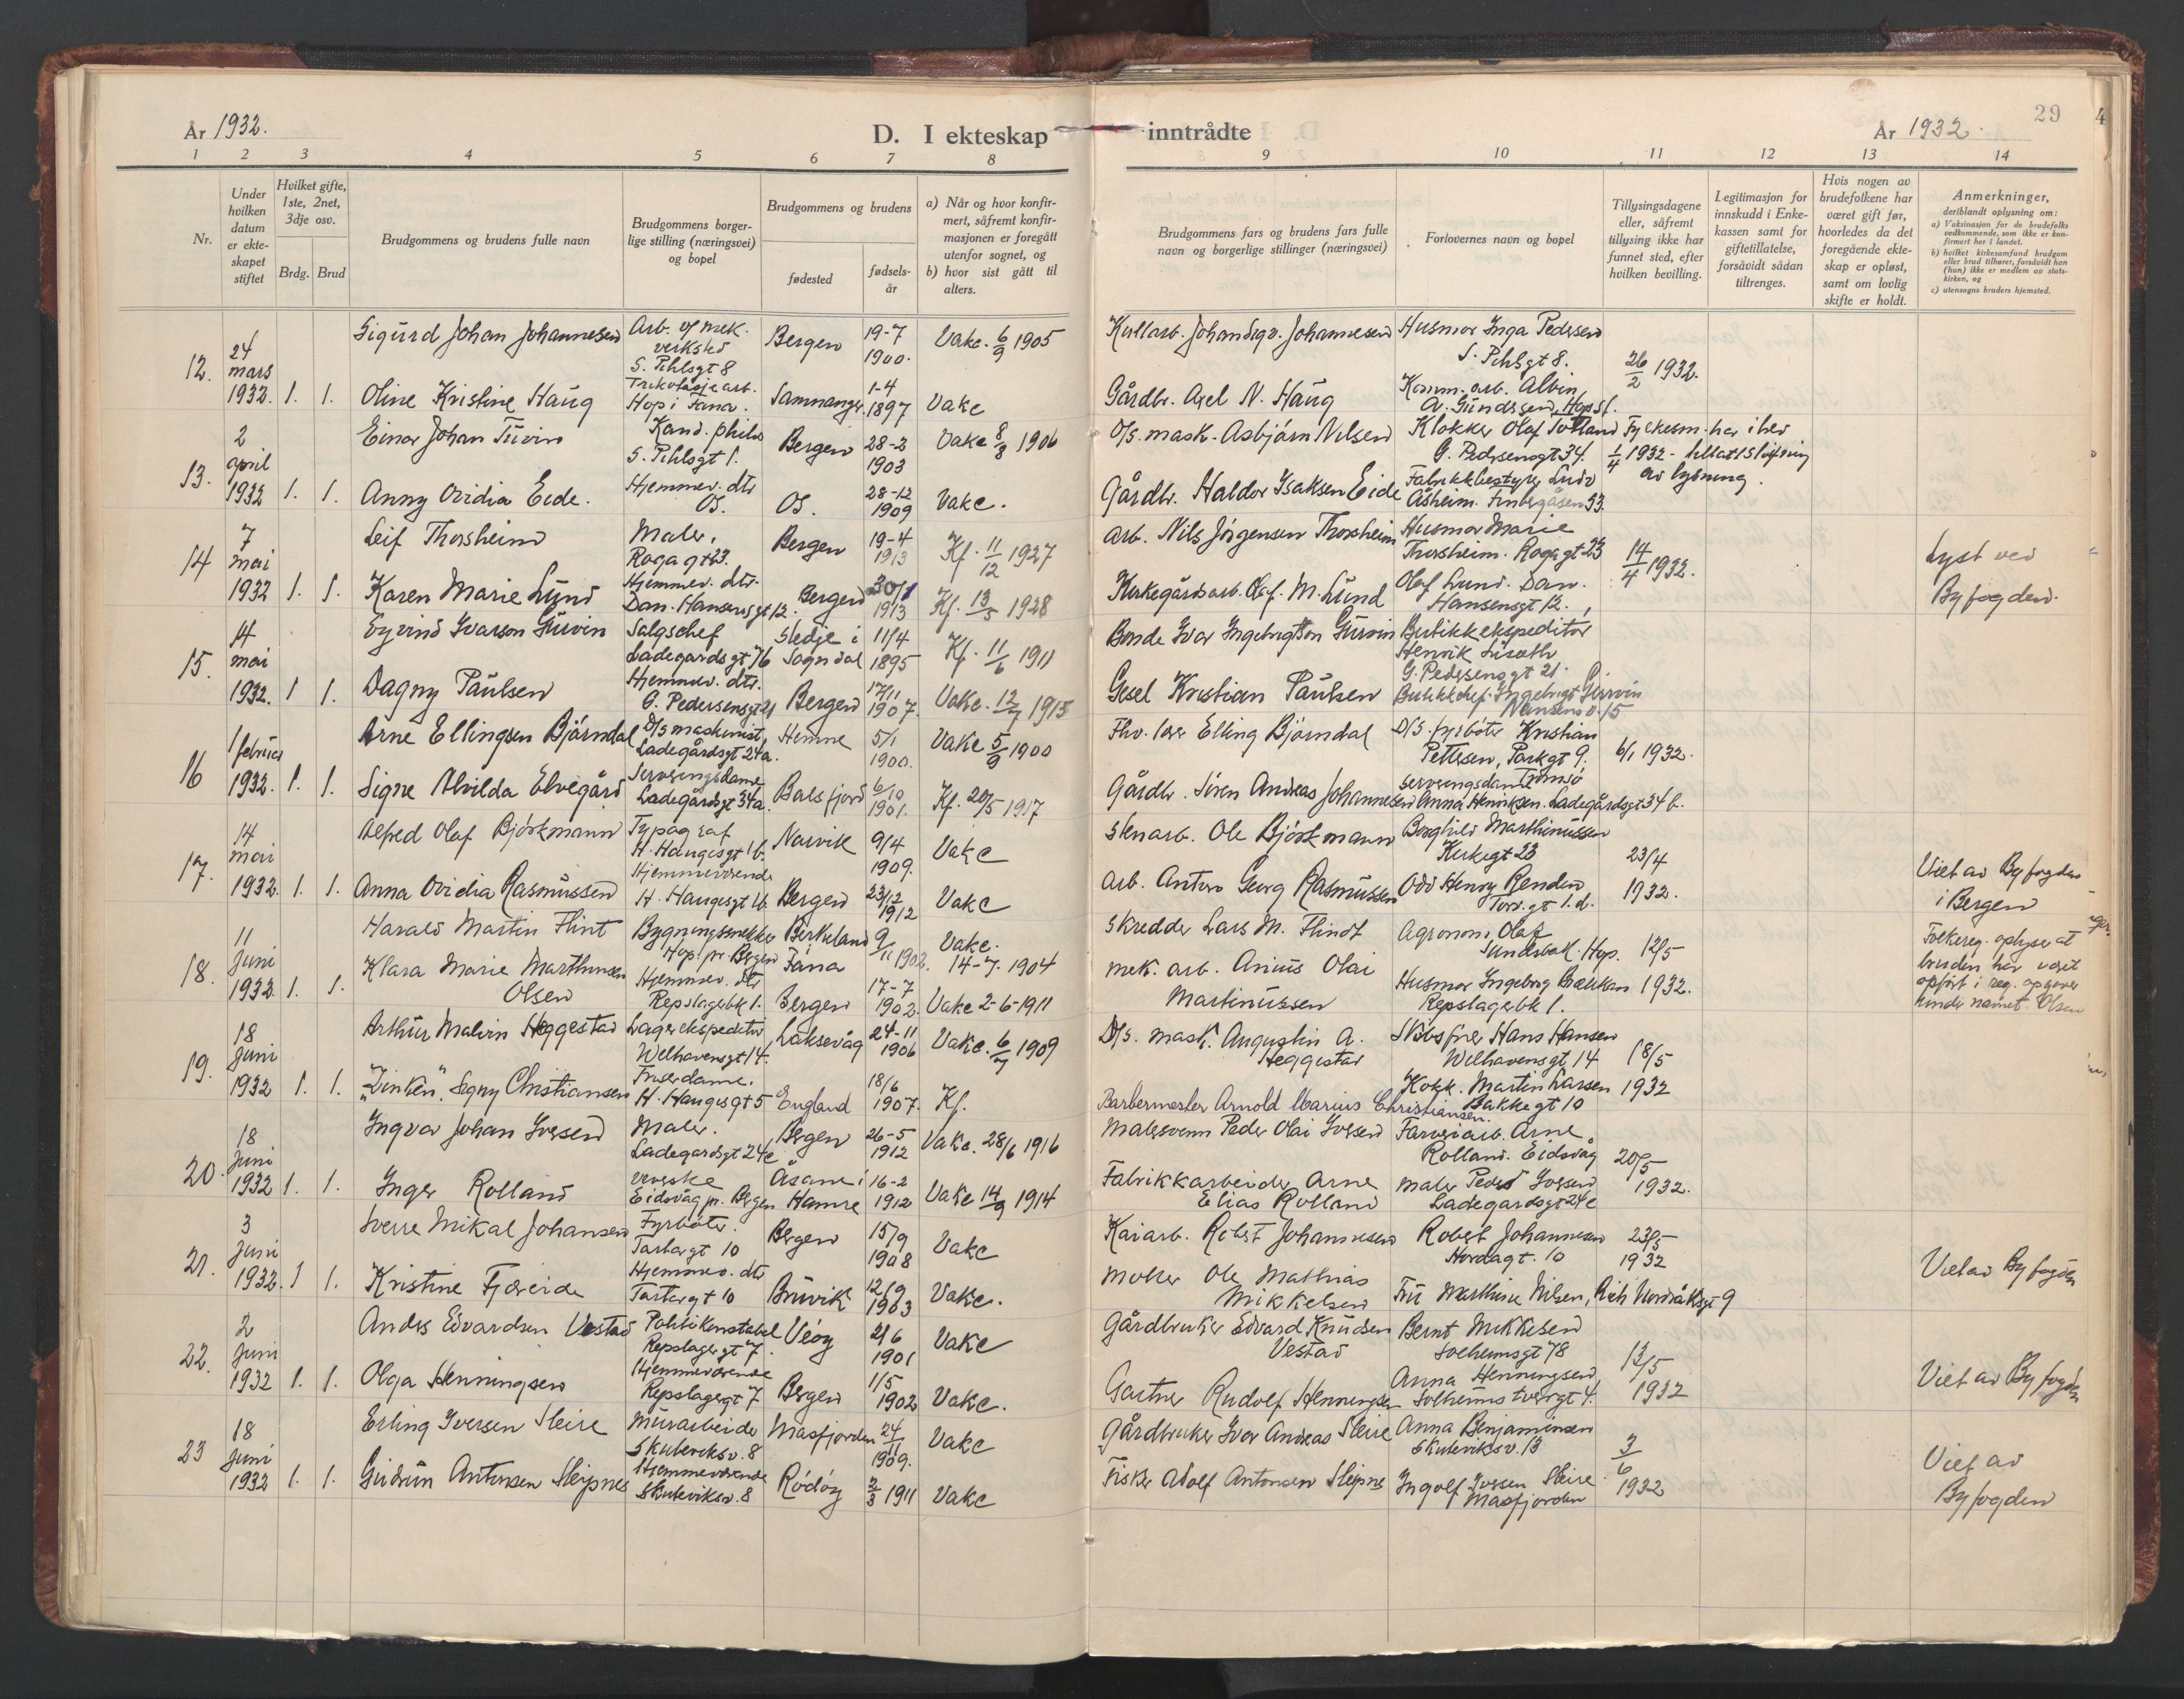 År 1932.
D. I ekteskap
inntrådte
År 1932.
29
4
1 2 3 4 5 6 7 8
9 10 11 12 13 14
Nr.
Under hvilken datum er ekteskapet stiftet
Hvilket gifte, 1ste, 2net, 3dje osv.
Brdg. Brud
Brudgommens og brudens fulle navn
Brudgommens borgerlige stilling (næringsvei) og bopel
Brudgommens og brudens
fødested
fødselsår
a) Når og hvor konfirmert, såfremt konfirmasjonen er foregått utenfor sognet, og
b) hvor sist gått til alters.
Brudgommens fars og brudens fars fulle navn og borgerlige stillinger (næringsvei)
Forlovernes navn og bopel
Tillysingsdagene eller, såfremt tillysing ikke har funnet sted, efter hvilken bevilling.
Legitimasjon for innskudd i Enkekassen samt for giftetillatelse, forsåvidt sådan tiltrenges.
Hvis nogen av brudefolkene har været gift før, hvorledes da det foregående ekteskap er opløst, samt om lovlig skifte er holdt.
Anmerkninger, deriblandt oplysning om:
a) Vaksinasjon for de brudefolks vedkommende, som ikke er konfirmert her i landet.
b) hvilket kirkesamfund brudgom eller brud tilhører, forsåvidt han (hun) ikke er medlem av statskirken, og
c) utensogns bruders hjemsted.
12. 24 mars 1932. 1. 1.
Sigurd Johan Johannesen Arb. v/ mek. verksted S. Pihlsgt 8 Bergen 19-7 1900. Vakc. 6/9 1905
Oline Kristine Haug Trikotasjearb. Hop i Fana. Samnanger 1-4 1897 Vakc
Johannesen Husmor Inga Pedersen S. Pihlsgt 8. 26/2 1932.
Gårdbr. Axel N. Haug Komm. arb. Alvin A. Gundersen, Hop st.
13. 2 april 1932 1. 1.
Einar Johan Kand. philos S. Pihlsgt 1. Bergen 28-2 1903 Vakc 8/8 1906
Anny Ovidia Eide. Hjemmev. dtr Os. Os. 28-12 1909 Vakc.
D/s. mask. Asbjørn Nilsen Klokker Olaf G. Pedersensgt 34. 1/4 1932 av lysning.
Gårdbr. Haldor Isaksen Eide Fabrikkbestyrer Åsheim. 53.
14 7 mai 1932 1. 1.
Leif Thorsheim Maler. Rogagt 23. Bergen 19-4 1913 Kf. 11/12 1927
Karen Marie Lund Hjemmev. dtr. Dan. Hansensgt 12. Bergen 1913 Kf. 13/5 1928
Arb. Nils Jørgensen Thorsheim Husmor Marie Thorsheim. Rogagt 23 14/4 1932. Lyst ved Byfogden.
Kirkegårdsarb. Olaf. M. Lund Olaf Lund. Dan. Hansensgt 12.
15. 14 mai 1932. 1 1.
Eyvind Ivarson Gurvin Salgschef Ladegårdsgt 76 Stedje i Sogndal 11/4 1895 Kf. 11/6 1911
Dagny Paulsen Hjemmev. dtr. G. Pedersensgt 21 Bergen 17/11 1907. Vakc. 12/7 1915
Bonde Ivar Ingebrigtson Gurvin Butikkekspeditør Henrik G. Pedersensgt 21.
Gesel Kristian Paulsen Butikkchef. Ingebrigt Gurvin Nansensv. 15
16 1 februar 1932. 1. 1.
Arne Ellingsen Bjørndal D/s maskinist, Ladegårdsgt 24a. Hemne 5/1 1900. Vakc 5/9 1900
Signe Alvilda Elvegård Serveringsdame Ladegårdsgt 34a. Balsfjord 6/10 1901. Kf. 20/5 1917
Fhv. lærer Elling Bjørndal D/s. fyrbøter Kristian Pettersen, Parkgt 9. Tromsø 6/1 1932.
Gårdbr. Søren Andreas Johannesen Serveringsdame Anna Henriksen. Ladegårdsgt 34 b.
17. 14 mai 1932. 1. 1.
Alfred Olaf Bjørkmann Typograf H. Haugesgt 1b. Narvik 9/4 1909. Vakc
Anna Ovidia Rasmussen Hjemmeværende H. Haugesgt 1b. Bergen 23/12 1912 Vakc
Stenarb. Ole Bjørkmann Borghild Marthinussen Kirkegt 23 23/4 1932. Viet av Byfogden i Bergen
Arb. Anton Georg Rasmussen Odd Henry Renden Torv.gt 1.d.
18. 11 juni 1932. 1. 1.
Harald Martin Flint Bygningssnekker Hop. pr. Bergen Birkeland Fana 9/11 1902. Vakc. 14-7. 1904
Klara Marie Marthinusen Olsen Hjemmev. dtr Repslagerbk 1. Bergen 17-7 1902. Vakc 2-6-1911
Skredder Lars M. Flindt Agronom Olaf Hop. 12/5 1932.
Mek. arb. Anius Olai Martinussen Husmor Ingeborg Bækkan Repslagerbk 1.
Folkereg. oplyser at bruden har vært opført i reg. under navnet Olsen
19. 18 juni 1932 1. 1.
Arthur Malvin Heggestad Lagerekspeditør Welhavensgt 14. Laksevåg 24-11 1906 Vakc. 6/7 1909
"Zinken" Segny Christiansen Friserdame. H. Haugesgt 5 England 18/6 1907. Kf.
D/s. mask. Augustin A. Heggestad Hans Hansen Welhavensgt. 14 18/5 1932
Barbermester Arnold Marius Christiansen. Kokk. Martin Larsen Bakkegt 10
20. 18 juni 1932 1. 1.
Ingvar Johan Iversen Maler. Ladegårdsgt 24c Bergen 26-5 1912 Vakc. 28/6 1916
Inger Rolland Eidsvåg pr. Bergen Åsane i Hamre 16-2 1912 Vakc 14/9 1914
Malersvenn Peder Olai Iversen Farveriarb. Arne Rolland. Eidsvåg 20/5 1932.
Fabrikkarbeider Arne Elias Rolland Maler Peder Iversen Ladegårdsgt 24c
21. 3 juni 1932. 1 1.
Sverre Mikal Johansen Fyrbøter. Tartargt 10 Bergen 15/9 1908 Vakc
Kristine Fjæreide Hjemmev. dtr Tartargt 10 Bruvik 12/9 1903 Vakc.
Kaiarb. Robert Johannesen Robert Johannesen Nordagt. 10 23/5 1932 Viet av Byfogden
Møller Ole Mathias Mikkelsen Fru Marthine Nilsen, Rich Nordråksgt 9
22. 2 juni 1932 1. 1.
Anders Edvardsen Vestad Politikonstabel Repslagergt 7. Veøy 2/6 1901 Vakc
Olga Henningsen Hjemmeværende Repslagergt 7 Bergen 1/5 1902 Vakc.
Gårdbruker Edvard Knudsen Vestad Bernt Mikkelsen Solheimsgt 78 13/5 1932 Viet av Byfogden
Gartner Rudolf Henningsen Anna Henningsen Solheims tverrgt 4.
23 18 juni 1932 1. 1.
Erling Iversen Steire Murarbeider Skuteviksv. 8 Masfjorden 24/11 1909. Vakc
Gudrun Antonsen Sleipnes Hjemmeværende Skuteviksv. 8 Rødøy 2/3 1911 Vakc
Gårdbruker Ivar Andreas Steire Anna Benjaminsen Skuteviksv. 13 3/6 1932 Viet av Byfogden
Fisker Adolf Antonsen Sleipnes Ingolf Iversen Steire Masfjorden